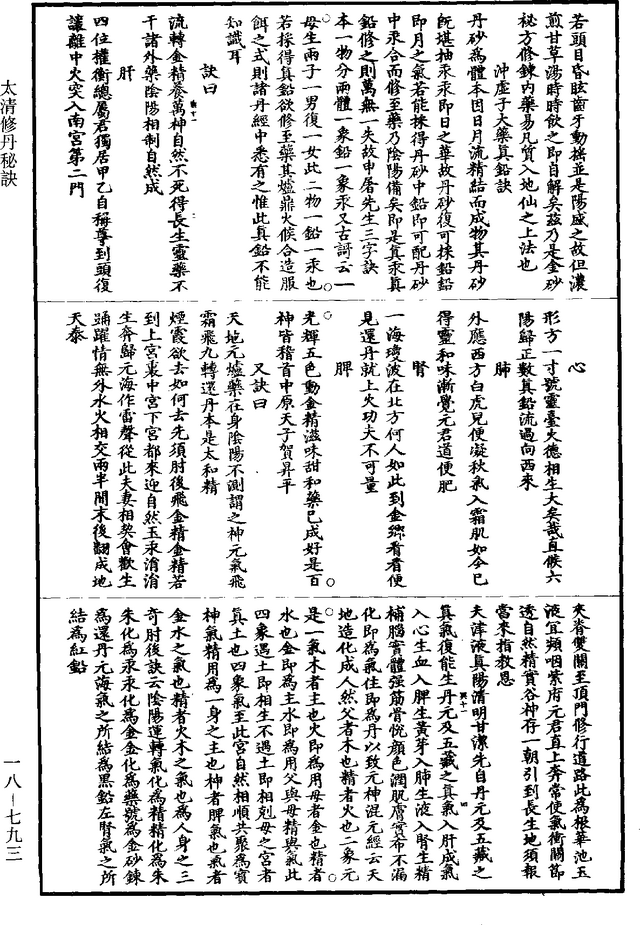 若頭目昏眩齒牙動搖並是陽盛之故但濃
煎甘草湯時時飲之即自解矣茲乃是金砂
秘方修鍊內藥易凡質入地仙之上法也
沖虛子大藥真鉛訣
丹砂為體本因日月流精結而成物其丹砂
既堪抽汞汞即日之華故丹砂復可採鉛鉛
即月之氣若能採得丹砂中鉛即可配丹砂
中汞合而修至藥乃陰陽備矣即是真汞真
鉛修之則萬無一失故申屠先生三字訣
本一物分兩體一象鉛一象汞又古謌云一
母生兩子一男復一女此二物一鉛一汞也
若採得真鉛欲修至藥其爐鼎火候合造服
餌之式則諸丹經中悉有之惟此真鉛不能
知識耳
訣曰
流轉金精養萬神自然不死得長生靈藥不
干諸外藥陰陽相制自然成
肝
四位權衡總屬君獨居甲乙自稱尊到頭復
讓離中火突入南宮第二門
心
形方一寸號靈臺火德相生大矣哉直候六
陽歸正數真鉛流過向西來
肺
外應西方白虎兒便凝秋氣入霜肌如今已
得靈和味漸覺元君道便肥
腎
一海瓊波在北方何人如此到金鄉看看便
見還丹就上火功夫不可量
脾
光輝五色動金精滋味甜和藥已成好是百
神皆稽首中原天子賀昇平
又訣曰
天地元爐藥在身陰陽不測謂之神元氣飛
霜飛九轉還丹本是太和精
煙霞欲去如何去先須肘後飛金精金精若
到上宮裏中宮下宮都來迎自然玉汞涓涓
生奔歸元海作雷聲從此夫妻相契會歡生
踊躍情無外水火相交兩半間末後翻成地
天泰
夾脊雙關至頂門修行道路此為根華池玉
液宜頻咽紫府元君直上奔常使氣衝關節
透自然精實谷神存一朝引到長生地須報
當來指教恩
夫津液真陽清明甘潔先自丹元及五藏之
真氣復能生丹元及五藏之真氣入肝成氣
入心生血入脾生黃芽入肺生液入腎生精
補腦實體強筋骨悅顏色潤肌膚營布不漏
化即為氣住即為丹以致元神混元經云天
地造化成人然父者木也精者火也二象元
是一氣木者主也火即為用母者金也精者
水也金即為主水即為用父與母精與氣此
四象遇土即相生不遇土即相剋母之宮者
真土也四象氣至此宮自然相順共聚為寶
神氣精用為一身之主也神者脾氣也氣者
金水之氣也精者火木之氣也為人身之三
奇肘後訣云陰陽運轉氣化為精精化為朱
朱化為汞汞化為金金化為藥號為金砂鍊
為還丹元海氣之所結為黑鉛左腎氣之所
結為紅鉛
太清修丹秘訣
一八－七九三